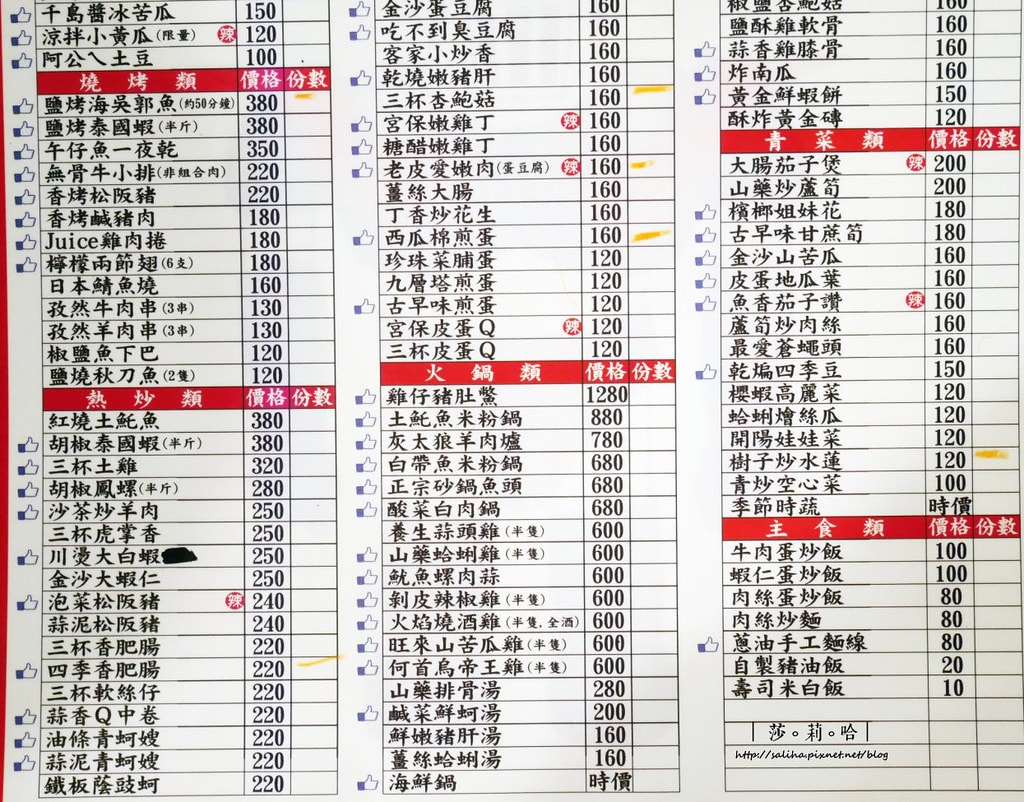 千島醬冰苦瓜 150
涼拌小黃瓜(限量) 辣 120
阿公ㄟ土豆 100
燒烤類 價格 份數
鹽烤海吳郭魚(約50分鐘) 380
鹽烤泰國蝦(半斤) 380
午仔魚一夜乾 350
無骨牛小排(非組合肉) 220
香烤松阪豬 220
香烤鹹豬肉 180
Juice雞肉捲 180
檸檬兩節翅(6支) 180
日本鯖魚燒 160
孜然牛肉串(3串) 130
孜然羊肉串(3串) 130
椒鹽魚下巴 120
鹽燒秋刀魚(2隻) 120
熱炒類 價格 份數
紅燒土魠魚 380
胡椒泰國蝦(半斤) 380
三杯土雞 320
胡椒鳳螺(半斤) 280
沙茶炒羊肉 250
三杯虎掌香 250
川燙大白蝦 250
金沙大蝦仁 250
泡菜松阪豬 辣 240
蒜泥松阪豬 240
三杯香肥腸 220
四季香肥腸 220
三杯軟絲仔 220
蒜香Q中卷 220
油條青蚵嫂 220
蒜泥青蚵嫂 220
鐵板蔭豉蚵 220
金沙蛋豆腐 160
吃不到臭豆腐 160
客家小炒香 160
乾燒嫩豬肝 160
三杯杏鮑菇 160
宮保嫩雞丁 辣 160
糖醋嫩雞丁 160
老皮愛嫩肉(蛋豆腐) 辣 160
薑絲大腸 160
丁香炒花生 160
西瓜棉煎蛋 160
珍珠菜脯蛋 120
九層塔煎蛋 120
古早味煎蛋 120
宮保皮蛋Q 辣 120
三杯皮蛋Q 120
火鍋類 價格 份數
雞仔豬肚鱉 1280
土魠魚米粉鍋 880
灰太狼羊肉爐 780
白帶魚米粉鍋 680
正宗砂鍋魚頭 680
酸菜白肉鍋 680
養生蒜頭雞(半隻) 600
山藥蛤蜊雞(半隻) 600
魷魚螺肉蒜 600
剝皮辣椒雞(半隻) 600
火焰燒酒雞(半隻.全酒) 600
旺來山苦瓜雞(半隻) 600
何首烏帝王雞(半隻) 600
山藥排骨湯 280
鹹菜鮮蚵湯 200
鮮嫩豬肝湯 160
薑絲蛤蜊湯 160
海鮮鍋 時價
椒鹽杏鮑菇 160
鹽酥雞軟骨 160
蒜香雞膝骨 160
炸南瓜 160
黃金鮮蝦餅 150
酥炸黃金磚 120
青菜類 價格 份數
大腸茄子煲 辣 200
山藥炒蘆筍 200
檳榔姐妹花 180
古早味甘蔗筍 180
金沙山苦瓜 160
皮蛋地瓜葉 160
魚香茄子讚 辣 160
蘆筍炒肉絲 160
最愛蒼蠅頭 160
乾煸四季豆 150
櫻蝦高麗菜 120
蛤蜊燴絲瓜 120
開陽娃娃菜 120
樹子炒水蓮 120
青炒空心菜 100
季節時蔬 時價
主食類 價格 份數
牛肉蛋炒飯 100
蝦仁蛋炒飯 100
肉絲蛋炒飯 80
肉絲炒麵 80
蔥油手工麵線 80
自製豬油飯 20
壽司米白飯 10
莎。莉。哈
http://saliha.pixnet.net/blog